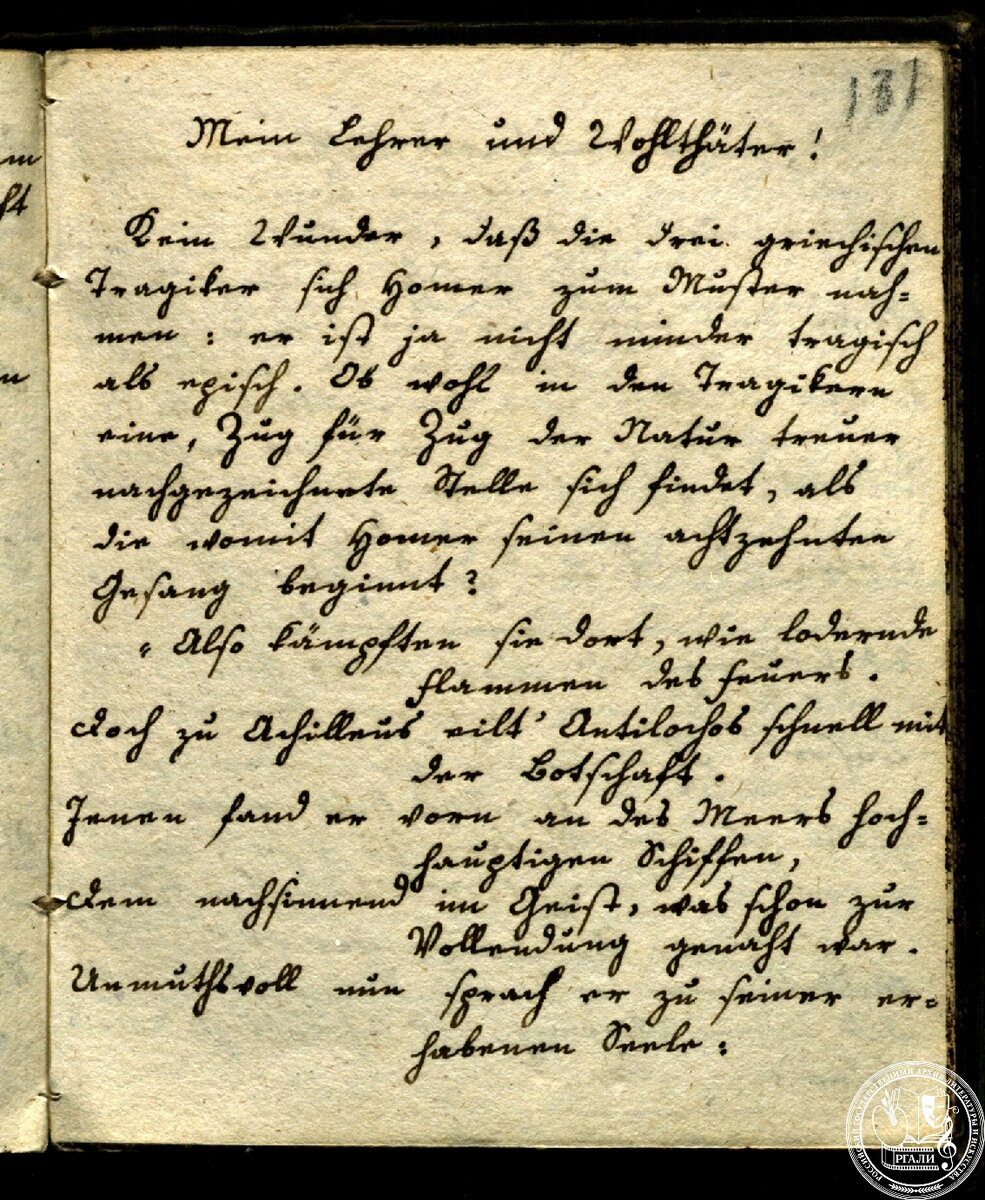 131
Mein Lehrer und Wohlthäter!
Kein Wunder, daß die drei griechischen
Tragiker sich Homer zum Muster nah-
men: er ist ja nicht minder tragisch
als episch. Ob wohl in den Tragikern
eine, Zug für Zug der Natur treuer
nachgezeichnete Stelle sich findet, als
die womit Homer seinen achtzehnten
Gesang beginnt?
„Also kämpften sie dort, wie lodernde
Flammen des Feuers.
Doch zu Achilleus eilt' Antilochos schnell mit
der Botschaft.
Jenen fand er vorn an des Meers hoch-
hauptigen Schiffen,
Dem nachsinnend im Geist, was schon zur
Vollendung genaht war.
Unmuthsvoll nun sprach er zu seiner er-
habenen Seele:
РОССИЙСКИЙ ГОСУДАРСТВЕННЫЙ АРХИВ ЛИТЕРАТУРЫ И ИСКУССТВА
РГАЛИ